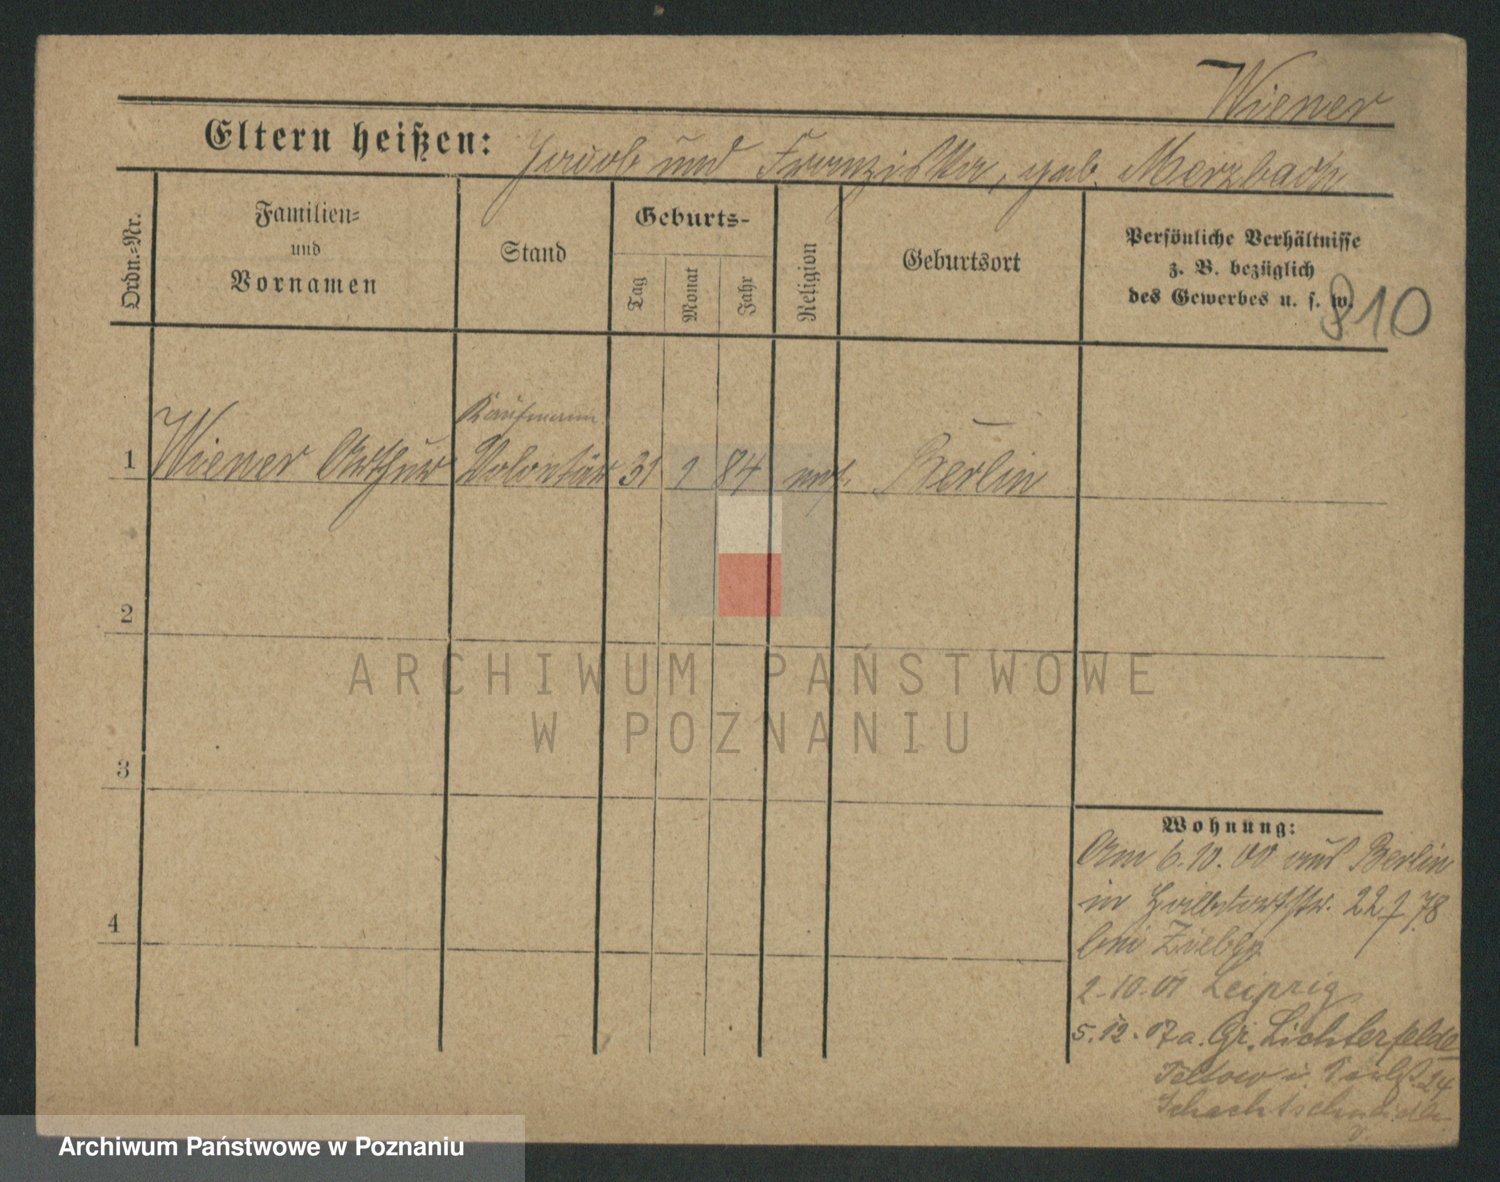 Wiener
Eltern heißen: Jacob und Franziska, geb. Merzbach
Ordn.-Nr.
Familien-
und
Vornamen
Stand
Geburts-
Tag
Monat
Jahr
Religion
Geburtsort
Persönliche Verhältnisse
z. B. bezüglich
des Gewerbes u. s. w.
810
Kaufmann
1 Wiener Arthur Volontär 31 84 Berlin
2
3
4
Wohnung:
Am 6.10.00 aus Berlin
in 22
bei
2.10.01 Leipzig
5.12.07 a. Gr. Lichterfelde
Teltow
ARCHIWUM PAŃSTWOWE
W POZNANIU
Archiwum Państwowe w Poznaniu